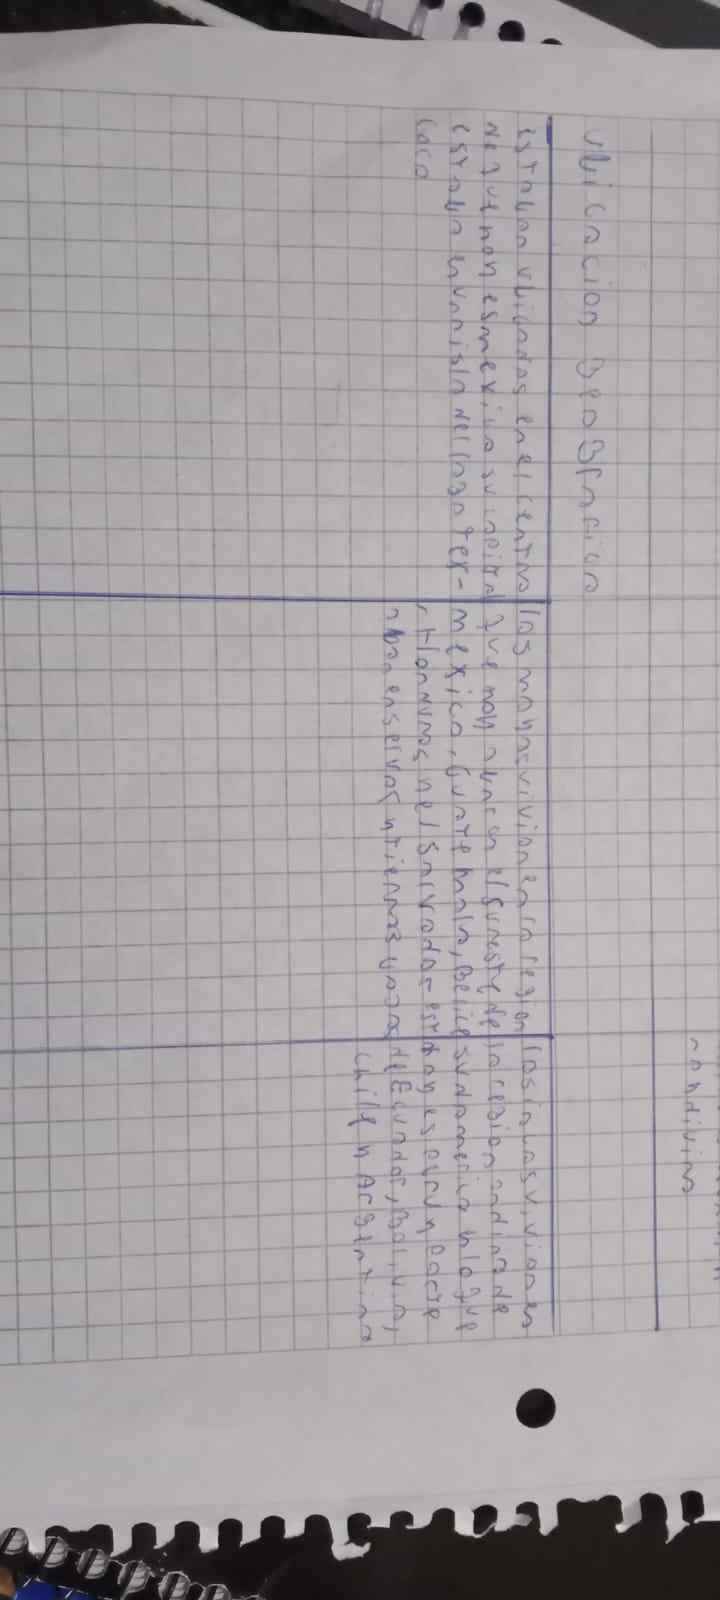 andina
ubicacion geografica
estaban ubicadas en el centro
de que hoy es mexico su capital
estaba en una isla del lago tex-
coco
los mayas vivian en la region
que hoy abarca el sureste de
mexico, Guatemala, Belice
, Honduras y el Salvador esta
en selvas y tierras
los incas vivian en
la region andina de
sudamerica y lo que
hoy es peru y parte
de Ecuador, Bolivia,
chile y Argentina